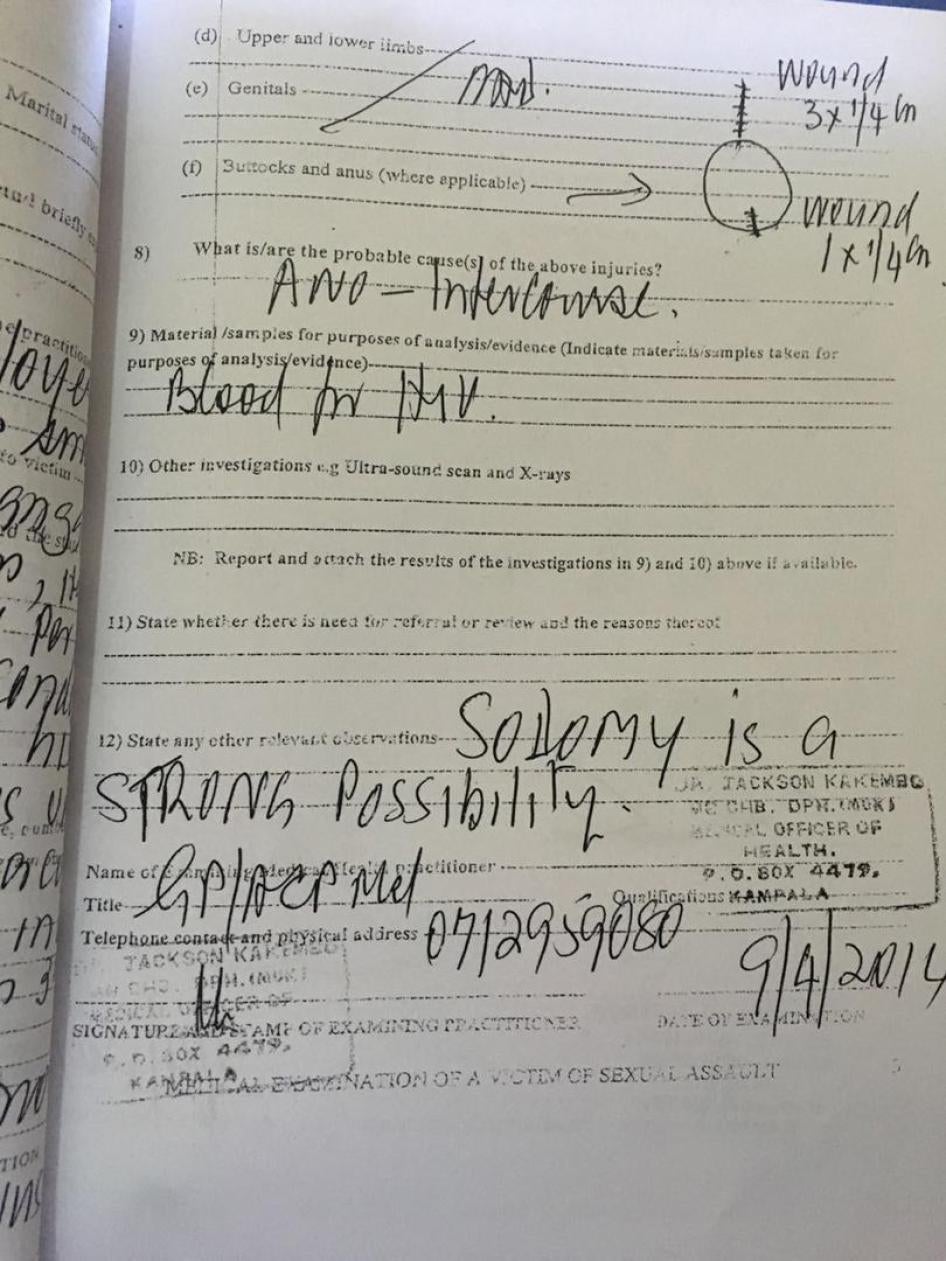 (d) Upper and lower limbs
(e) Genitals
wound
3 x 1/4 cm
(f) Buttocks and anus (where applicable)
wound
1 x 1/4 cm
8) What is/are the probable cause(s) of the above injuries?
ANO - Intercourse.
9) Material /samples for purposes of analysis/evidence (Indicate materials/samples taken for
purposes of analysis/evidence)
Blood for HIV.
10) Other investigations e.g Ultra-sound scan and X-rays
NB: Report and attach the results of the investigations in 9) and 10) above if available.
11) State whether there is need for referral or review and the reasons thereof
12) State any other relevant observations
SODOMY is a
STRONG Possibility.
DR. JACKSON KAKEMBO
DPH. (MUK)
MEDICAL OFFICER OF
HEALTH.
P.O.BOX 4479.
KAMPALA
Name of Examining Medical/Health practitioner
Title
Qualifications
Telephone contact and physical address
0712959080
9/4/2014
JACKSON KAKEMBO
DPH. (MUK)
MEDICAL OFFICER OF
SIGNATURE AND STAMP OF EXAMINING PRACTITIONER
DATE OF EXAMINATION
P.O.BOX 4479.
KAMPALA
MEDICAL EXAMINATION OF A VICTIM OF SEXUAL ASSAULT
Marital
briefly